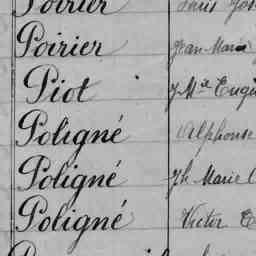 Poirier
Poirier Jean Marie
Piot J. Mie Eugè
Poligné Alphonse
Poligné Jh Marie
Poligné Victor E